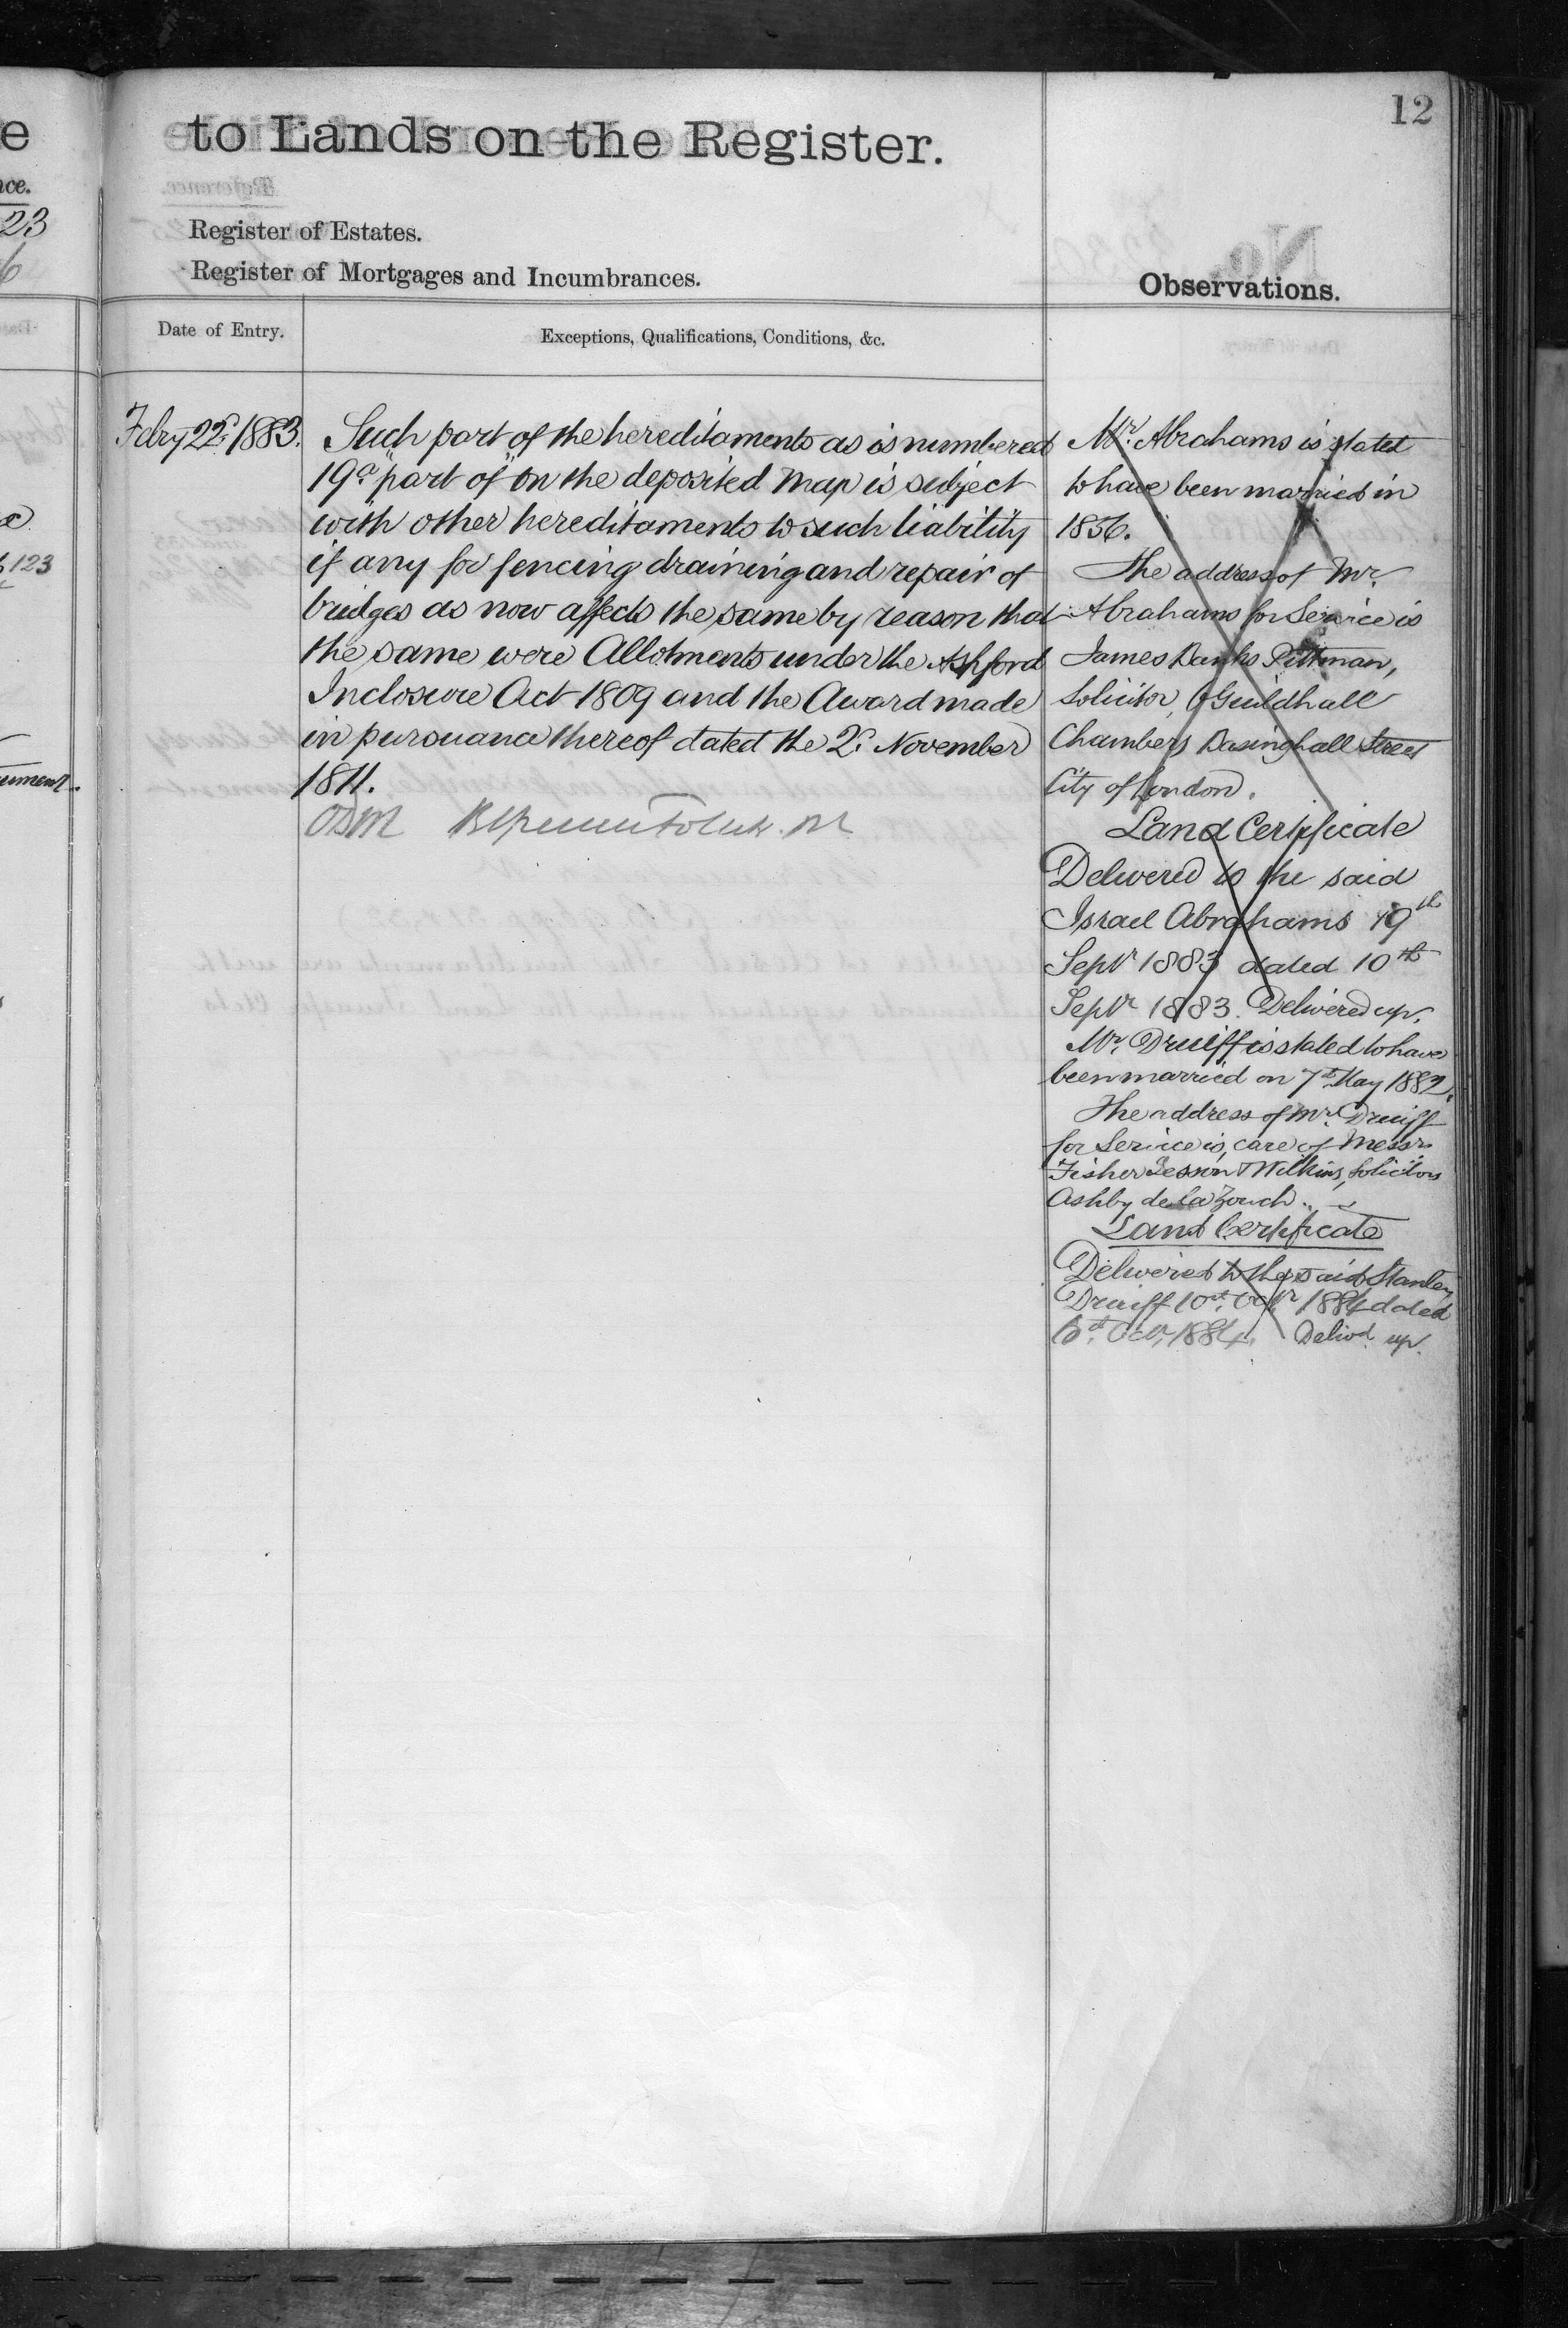 12
to Lands on the Register.
Register of Estates.
Register of Mortgages and Incumbrances.
Observations.
Date of Entry.
Exceptions, Qualifications, Conditions, &c.
Febry 22d. 1883.
Such part of the hereditaments as is numbered
19a "part of" on the deposited map is subject
with other hereditaments to such liability
if any for fencing draining and repair of
bridges as now affects the same by reason that
the same were Allotments under the Ashford
Inclosure Act 1809 and the Award made
in pursuance thereof dated the 2d. November
1811.
Mr. Abrahams is stated
to have been married in
1856.
The address of Mr.
Abrahams for Service is
James Banks Pittman,
Solicitor, Guildhall
Chambers Basinghall Street
City of London.
Land Certificate
Delivered to the said
Israel Abrahams 19th
Septr 1883 dated 10th
Septr 1883. Delivered up.
Mr. Druiff is stated to have
been married on 7th May 1882.
The address of Mr. Druiff
for Service is, care of Messrs
Fisher Jesson & Wilkins, Solicitors
Ashby de la Zouch.
Land Certificate
Delivered to the said Stanley
Druiff 10th. Octr 1884 dated
Octr. 1884. Delivd. up.
e
nce.
23
6
123